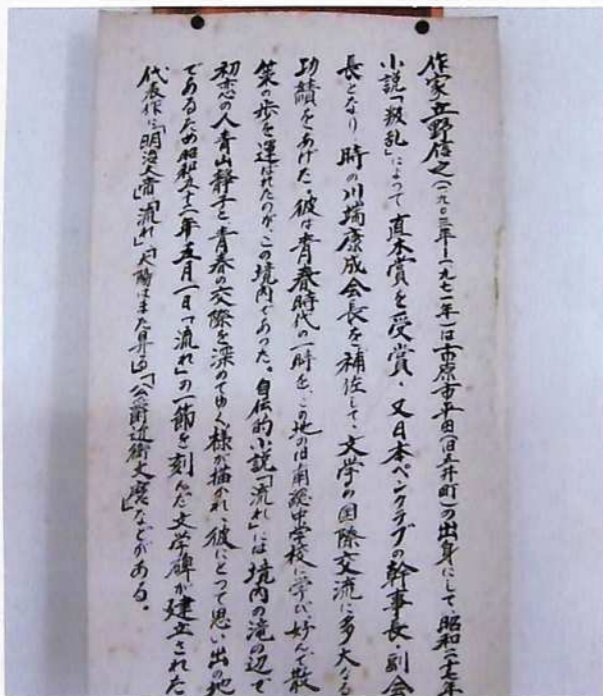 作家立野信之(一九〇三年ー一九七一年)は市原市平田(旧五井町)の出身にして、昭和二十七年
小説「叛乱」によって直木賞を受賞、又日本ペンクラブの幹事長・副会
長となり、時の川端康成会長を補佐して、文学の国際交流に多大なる
功績をあげた。彼は青春時代の一時を、この地の旧南総中学校に学び、好んで散
策の歩を運ばれたのが、この境内であった。自伝的小説「流れ」には境内の滝の辺で
初恋の人青山静子と青春の交際を深めてゆく様が描かれ、彼にとって思い出の地
であるため昭和五十二年五月一日「流れ」の一節を刻んだ文学碑が建立された
代表作に「明治大帝」「流れ」、「太陽はまた昇る」「公爵近衛文麿」などがある。